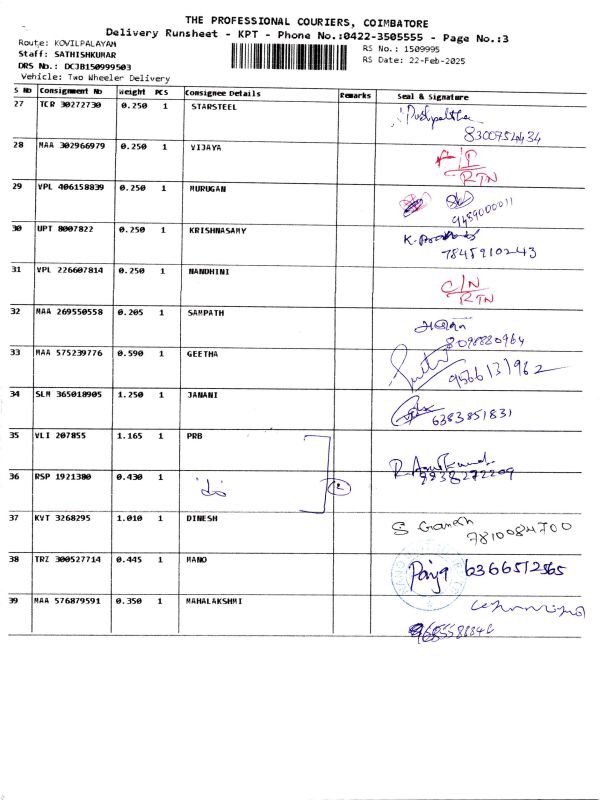 THE PROFESSIONAL COURIERS, COIMBATORE
Delivery Runsheet - KPT - Phone No.:0422-3505555 - Page No.:3
Route: KOVILPALAYAM
RS No.: 1509995
Staff: SATHISHKUMAR
RS Date: 22-Feb-2025
DRS No.: DCJB150999503
Vehicle: Two Wheeler Delivery
S No Consignment No Weight PCS Consignee Details Remarks Seal & Signature
27 TCR 30272730 0.250 1 STARSTEEL
8300754434
28 MAA 302966979 0.250 1 VIJAYA
RTN
29 VPL 406158839 0.250 1 MURUGAN
9489000011
30 UPT 8007822 0.250 1 KRISHNASAMY
7845910243
31 VPL 226607814 0.250 1 NANDHINI C/N
RTN
32 MAA 269550558 0.205 1 SAMPATH
8098880964
33 MAA 575239776 0.590 1 GEETHA
9566131962
34 SLM 365018905 1.250 1 JANANI
6383851831
35 VLI 207855 1.165 1 PRB
36 RSP 1921380 0.430 1
37 KVT 3268295 1.010 1 DINESH S Ganesh
7810084700
38 TRZ 300527714 0.445 1 MANO 6366512565
39 MAA 576879591 0.350 1 MAHALAKSHMI